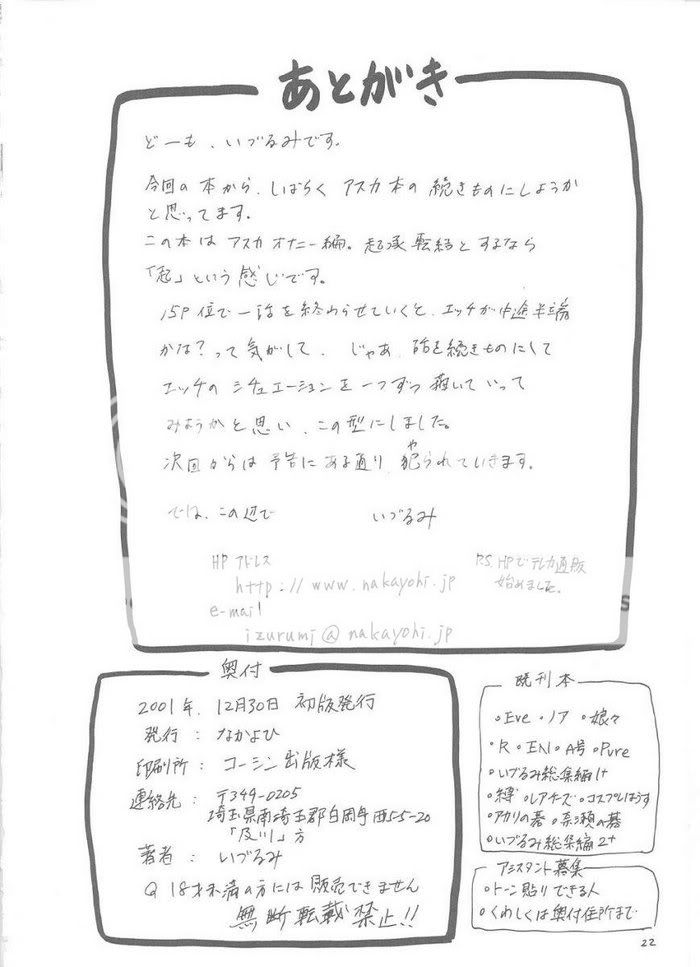 あとがき
どーも、いづるみです。
今回の本から、しばらく アスカ本の 続きものにしようか
と思ってます。
この本は アスカ オナニー編。起承転結とするなら
「起」という感じです。
15P位で一話を終わらせていくと、エッチが中途半端
かな?って気がして、じゃあ、話を続きものにして
エッチの シチュエーションを 一つずつ 描いていって
みようかと思い、この型にしました。
次回からは 予告にある通り、犯(や)られていきます。
では、この辺で いづるみ
HP アドレス
http://www.nakayohi.jp
e-mail
izurumi@nakayohi.jp
P.S. HPでテレカ通販
始めました。
奥付
2001年、12月30日 初版発行
発行：なかよひ
印刷所：コーシン出版様
連絡先：〒349-0205
埼玉県南埼玉郡白岡町西5-5-20
「及川」方
著者：いづるみ
18才未満の方には 販売できません
無断転載禁止!!
既刊本
◦Eve ◦ノア ◦娘々
◦R ◦EN ◦A号 ◦Pure
◦いづるみ総集編1+
◦縛 ◦レアチーズ ◦コスプレはうす
◦アカリの碁 ◦奈瀬の碁
◦いづるみ総集編2+
アシスタント募集
◦トーン貼りできる人
◦くわしくは奥付住所まで
22